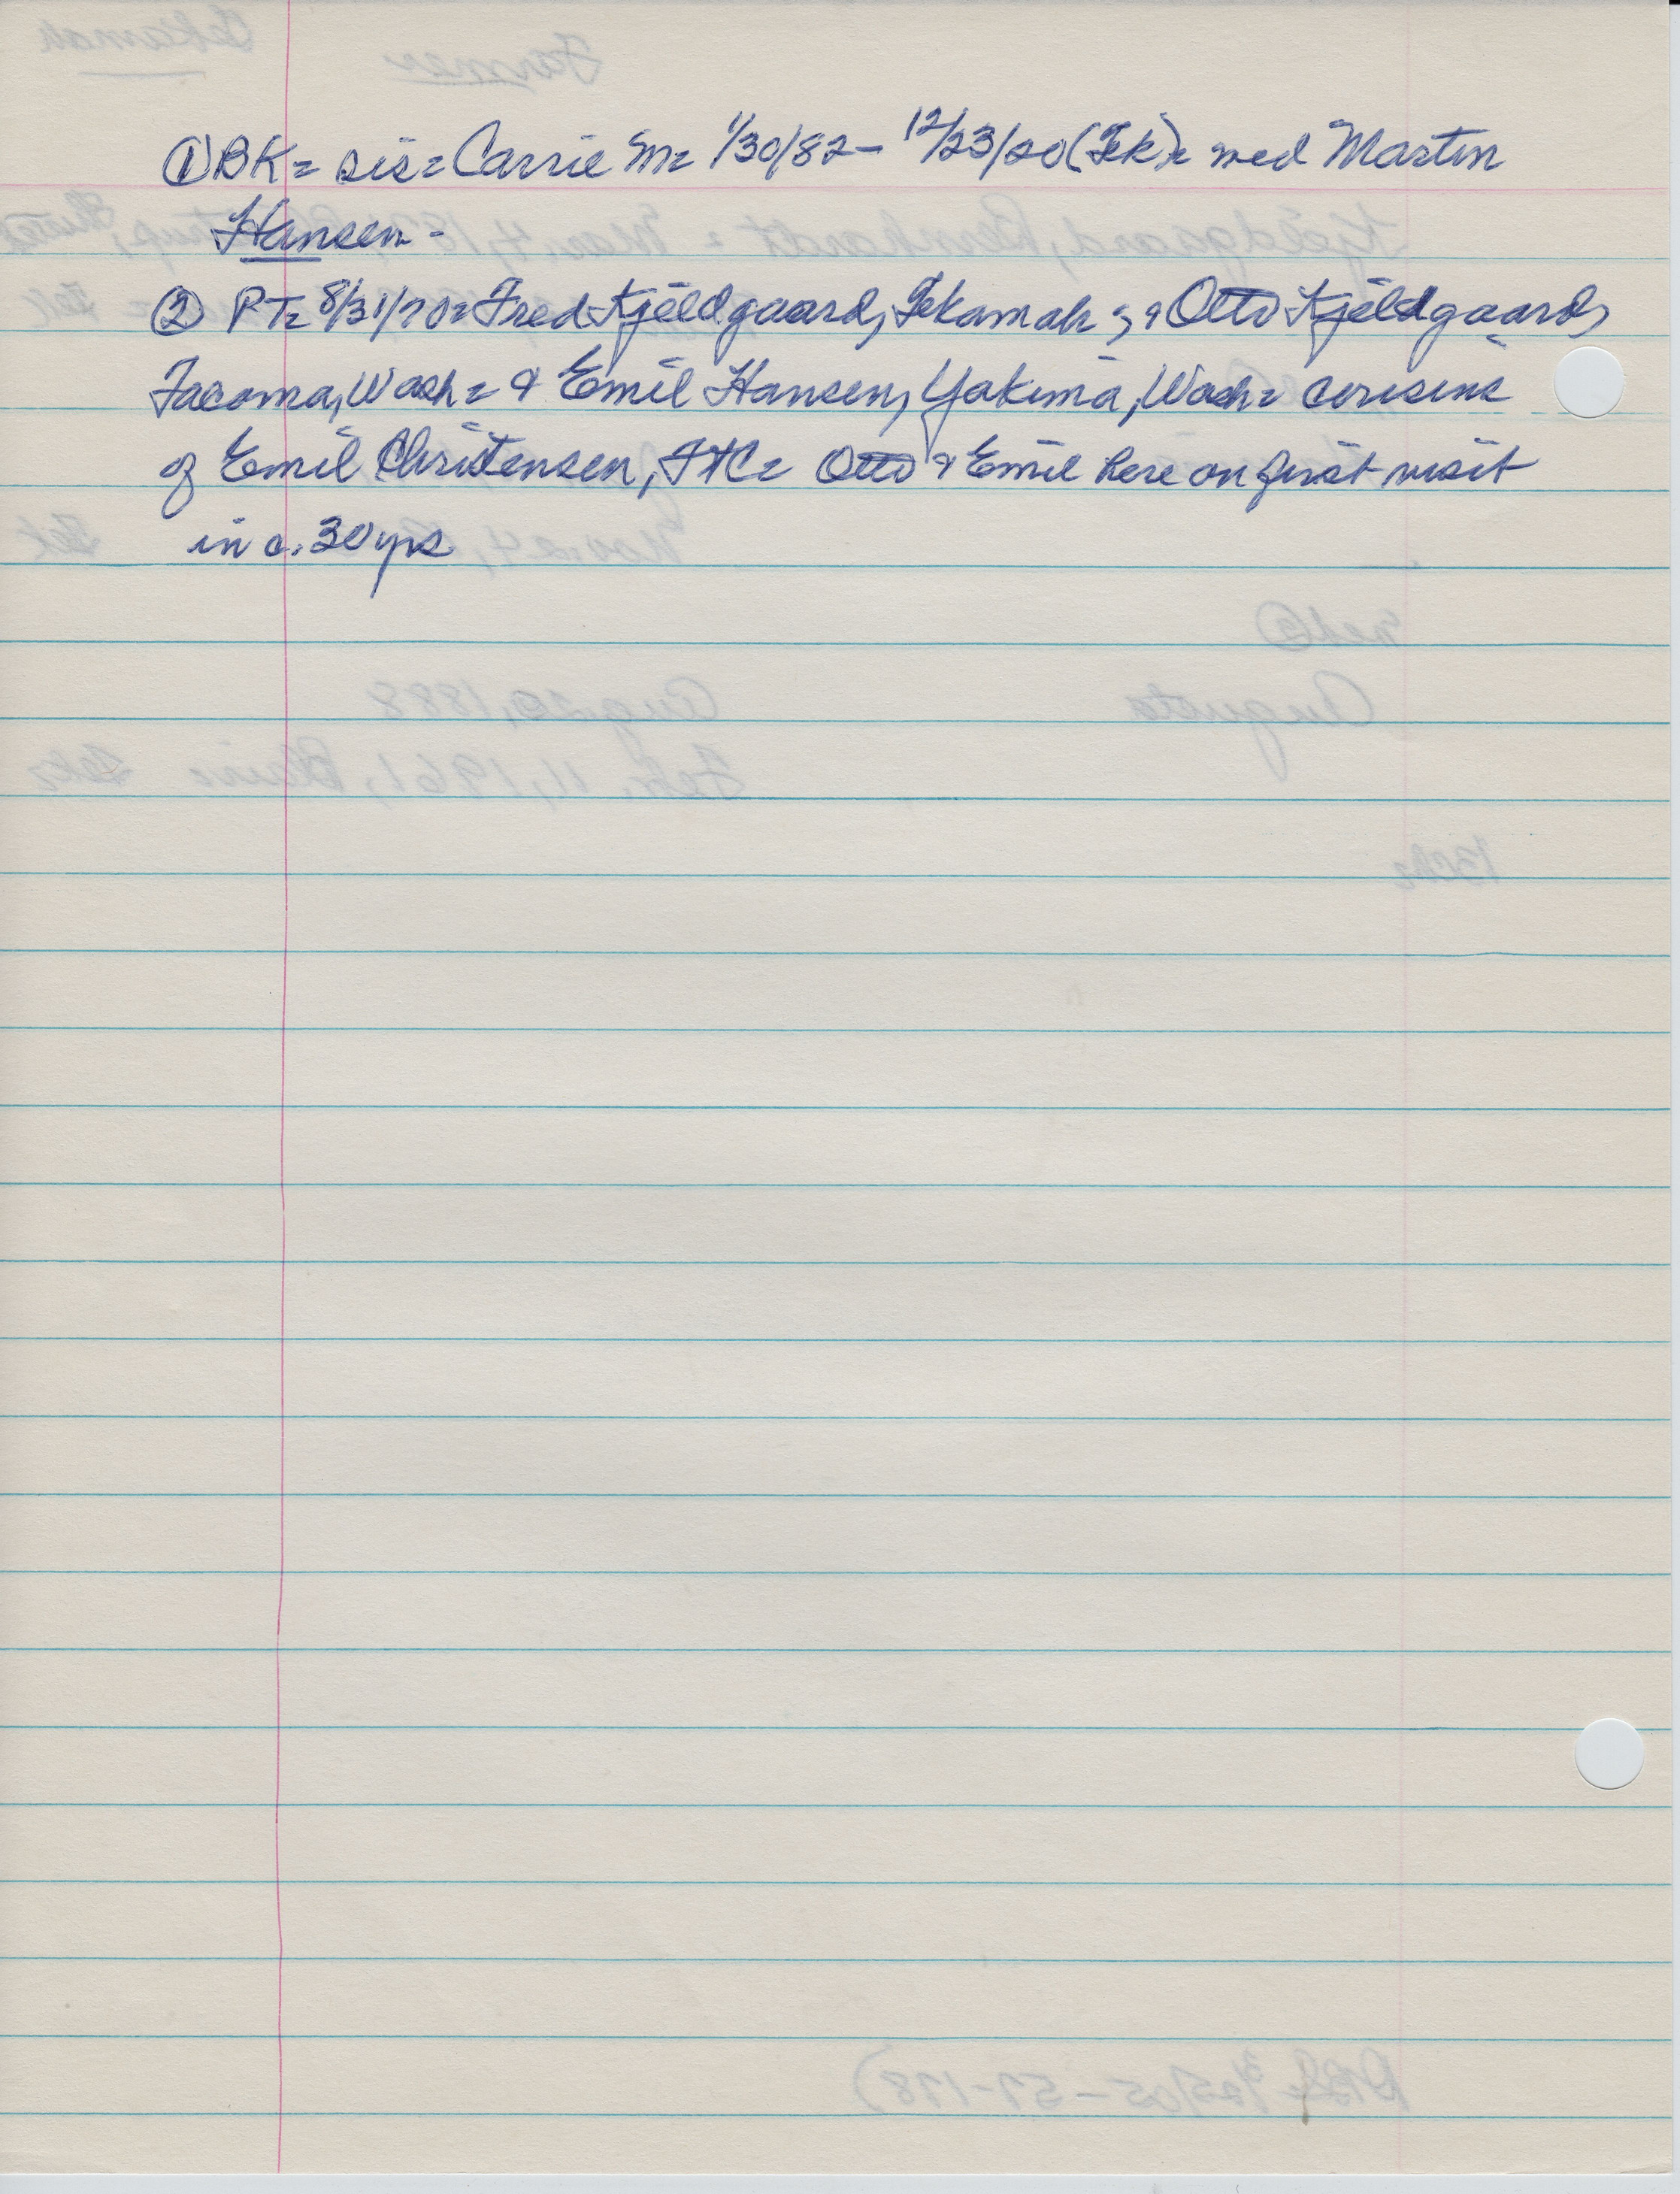 ① BK = sis = Carrie M = 1/30/82 – 12/23/20 (Tek) = med Martin
Hansen -
② PT = 8/31/70 = Fred Kjeldgaard, Tekamah ; & Otto Kjeldgaard,
Tacoma, Wash = & Emil Hansen, Yakima, Wash = cousins
of Emil Christensen, = Otto & Emil here on first visit
in c. 30 yrs